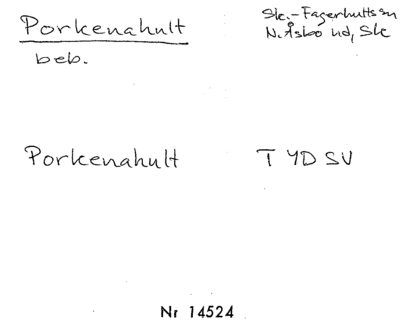 Porkenahult
Sk.-Fagerhults sn
N. Åsbo hd, Sk
beb.
Porkenahult TYDSV
Nr 14524